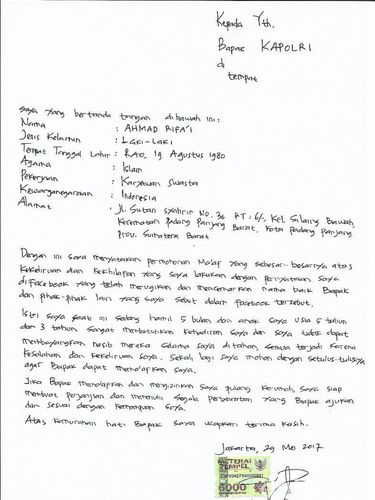 Kepada Yth.
Bapak KAPOLRI
di
tempat
Saya yang bertanda tangan dibawah ini:
Nama : AHMAD RIFA'I
Jenis Kelamin : Laki-Laki
Tempat Tanggal Lahir : RAO, 19 Agustus 1980
Agama : Islam
Pekerjaan : Karyawan Swasta
Kewarganegaraan : Indonesia
Alamat : Jl. Sutan Syahrir No. 36 RT: 6/, Kel. Silaing Bawah,
Kecamatan Padang Panjang Barat, Kota Padang Panjang
Prov. Sumatera Barat
Dengan ini saya menyatakan permohonan Ma'af yang sebesar-besarnya atas
Kekeliruan dan Kekhilapan yang saya lakukan dengan pernyataan saya
di facebook yang telah merugikan dan mencemarkan nama baik Bapak
dan pihak-pihak lain yang saya sebut dalam facebook tersebut.
Istri saya saat ini sedang hamil 5 bulan dan anak saya usia 5 tahun
dan 3 tahun sangat membutuhkan kehadiran saya dan saya tidak dapat
membayangkan nasib mereka selama saya ditahan, semua terjadi karena
Kesalahan dan Kekeliruan saya. Sekali lagi saya mohon dengan setulus-tulusnya
agar Bapak dapat mema'afkan saya.
Jika Bapak mema'afkan dan mengizinkan saya pulang kerumah, saya siap
membuat perjanjian dan memenuhi segala persyaratan yang Bapak ajukan
dan sesuai dengan kemampuan saya.
Atas kemurahan hati Bapak saya ucapkan terima kasih.
Jakarta, 29 Mei 2017
METERAI
TEMPEL
6000